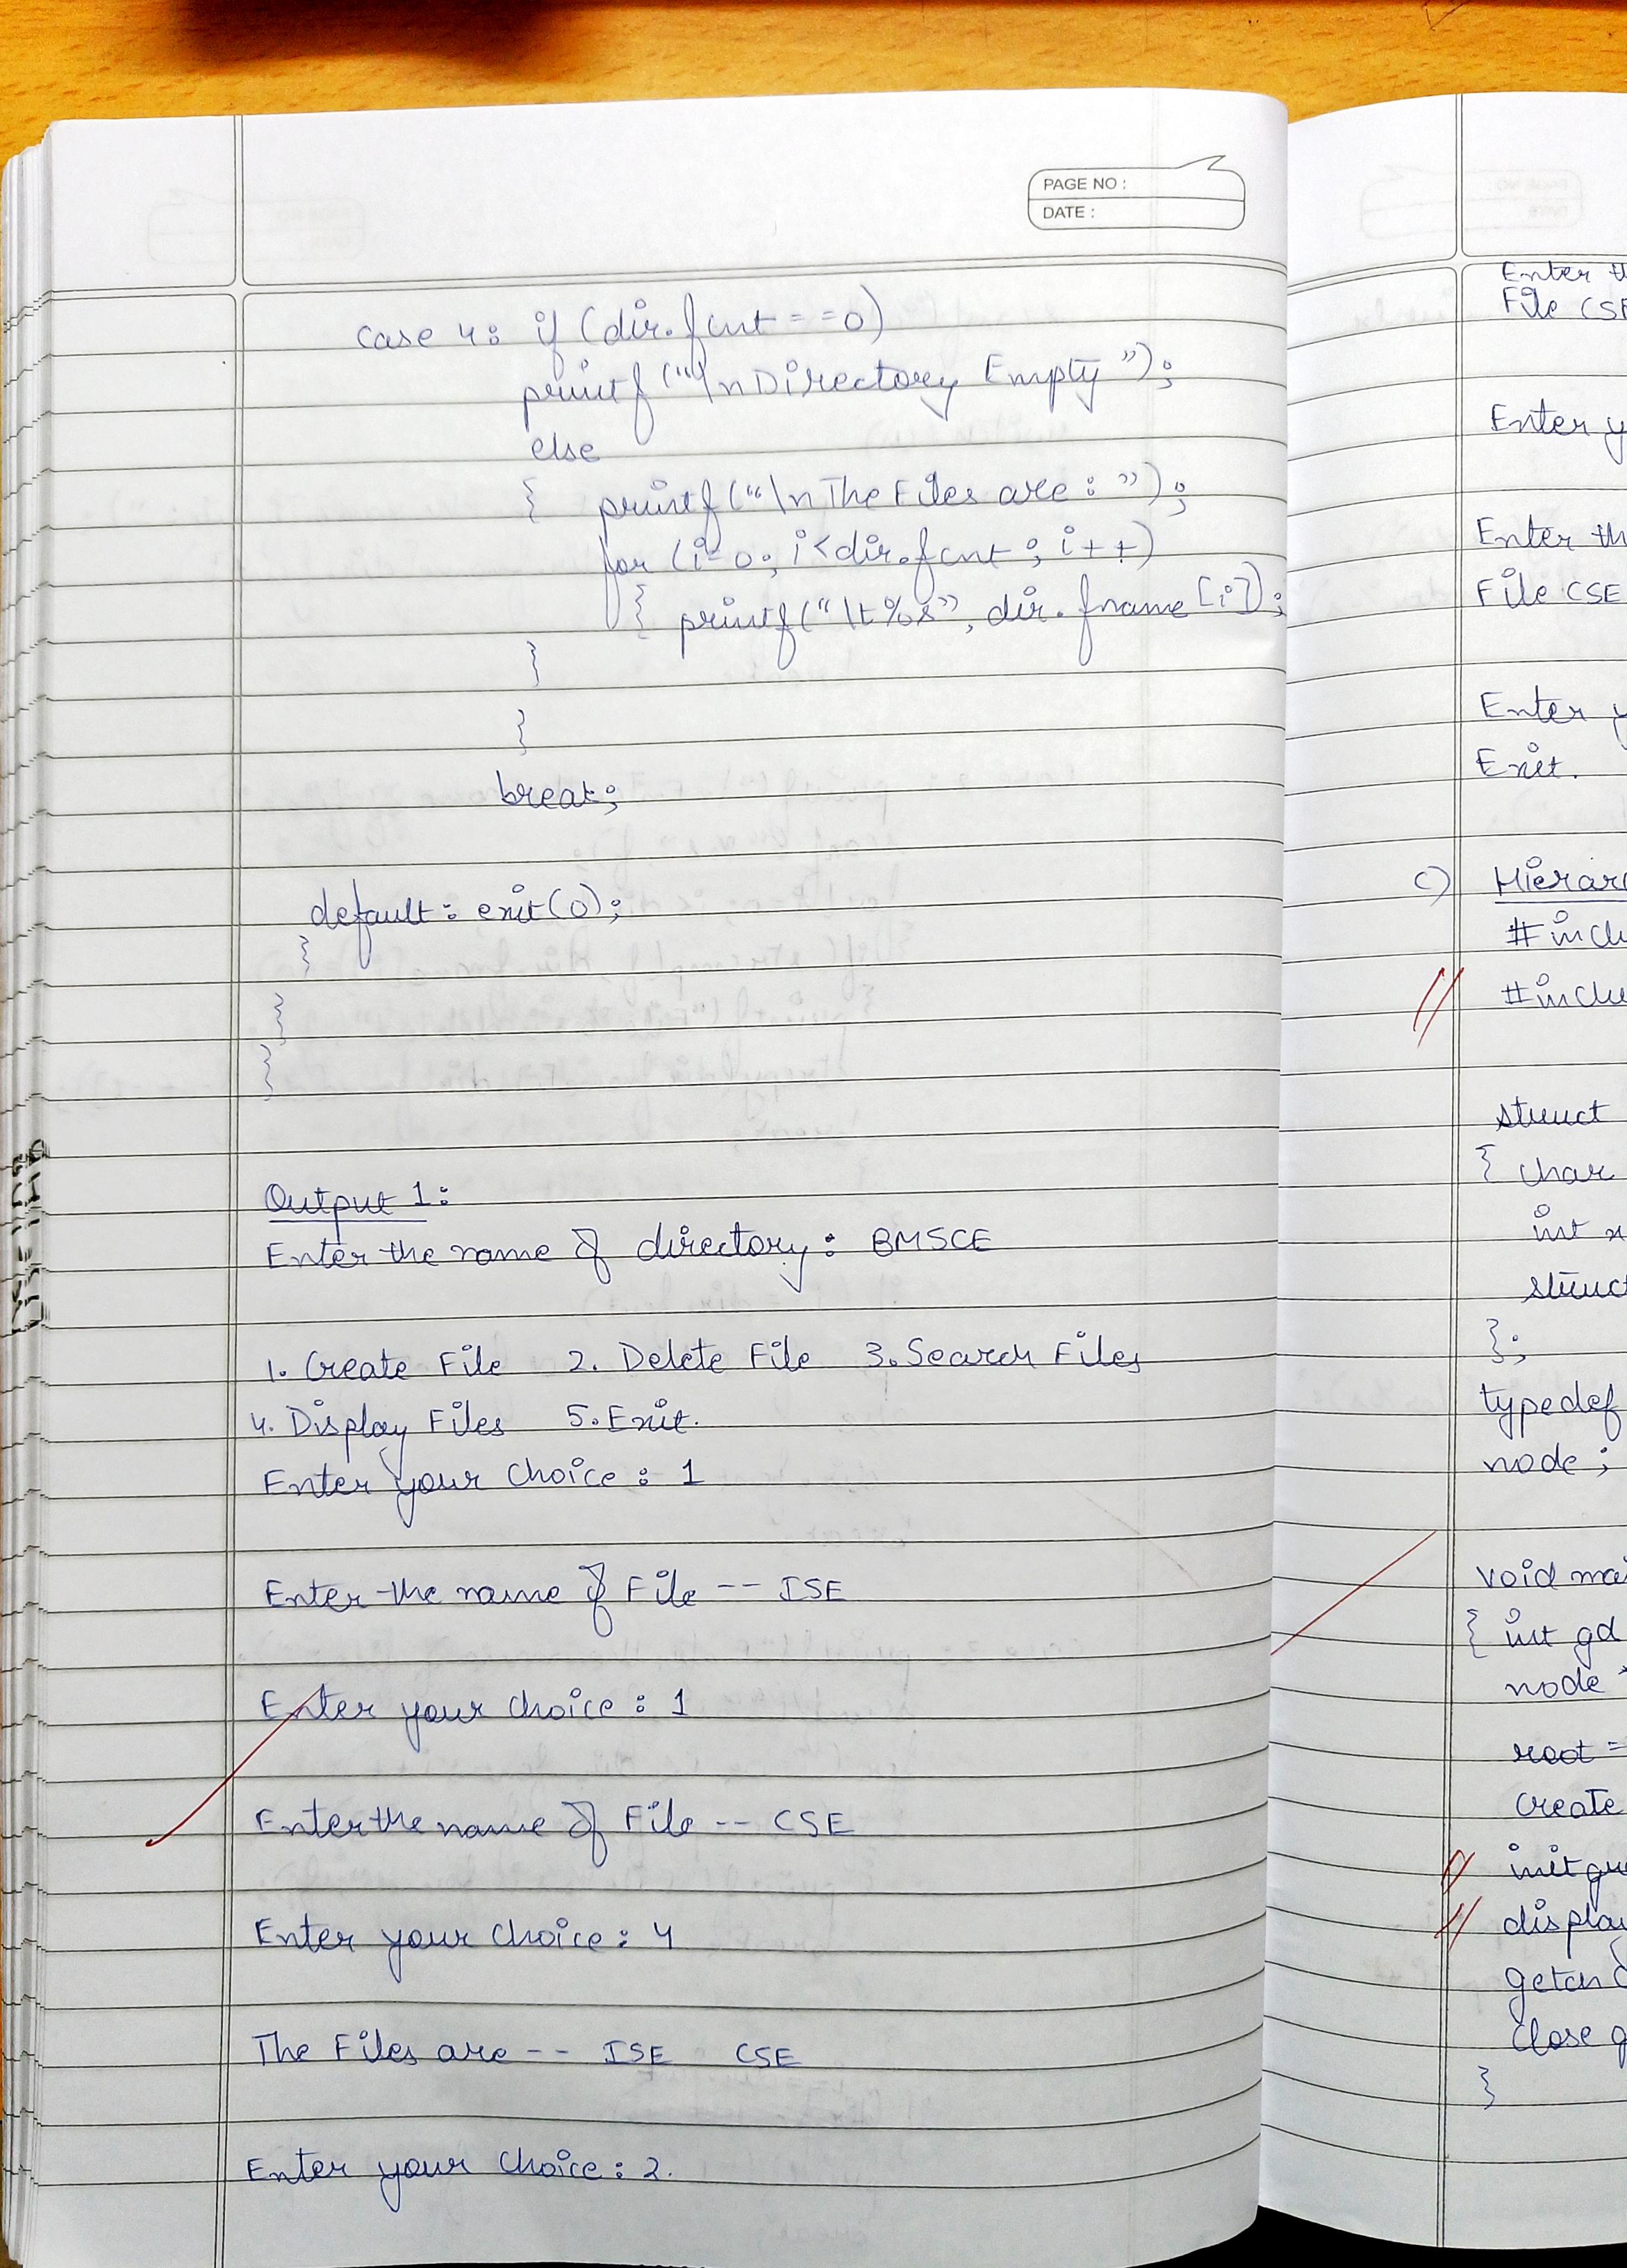 PAGE NO :
DATE :
case 4: if (dir.fcnt==0)
printf("\nDirectory Empty");
else
{ printf("\nThe Files are: ");
for (i=0; i<dir.fcnt; i++)
{ printf("\t%s", dir.fname[i]);
}
}
break;
default: exit(0);
}
}
}
Output 1:
Enter the name of directory: BMSCE
1. Create File 2. Delete File 3. Search Files
4. Display Files 5. Exit.
Enter your choice: 1
Enter the name of File -- ISE
Enter your choice: 1
Enter the name of File -- CSE
Enter your choice: 4
The Files are -- ISE CSE
Enter your choice: 2.
Enter
File
Enter
Enter
File CSE
Enter
Exit.
C)
//
struct
{ char
int
struct
};
typedef
node;
void
{ int gd
node
root =
create
//
//
}